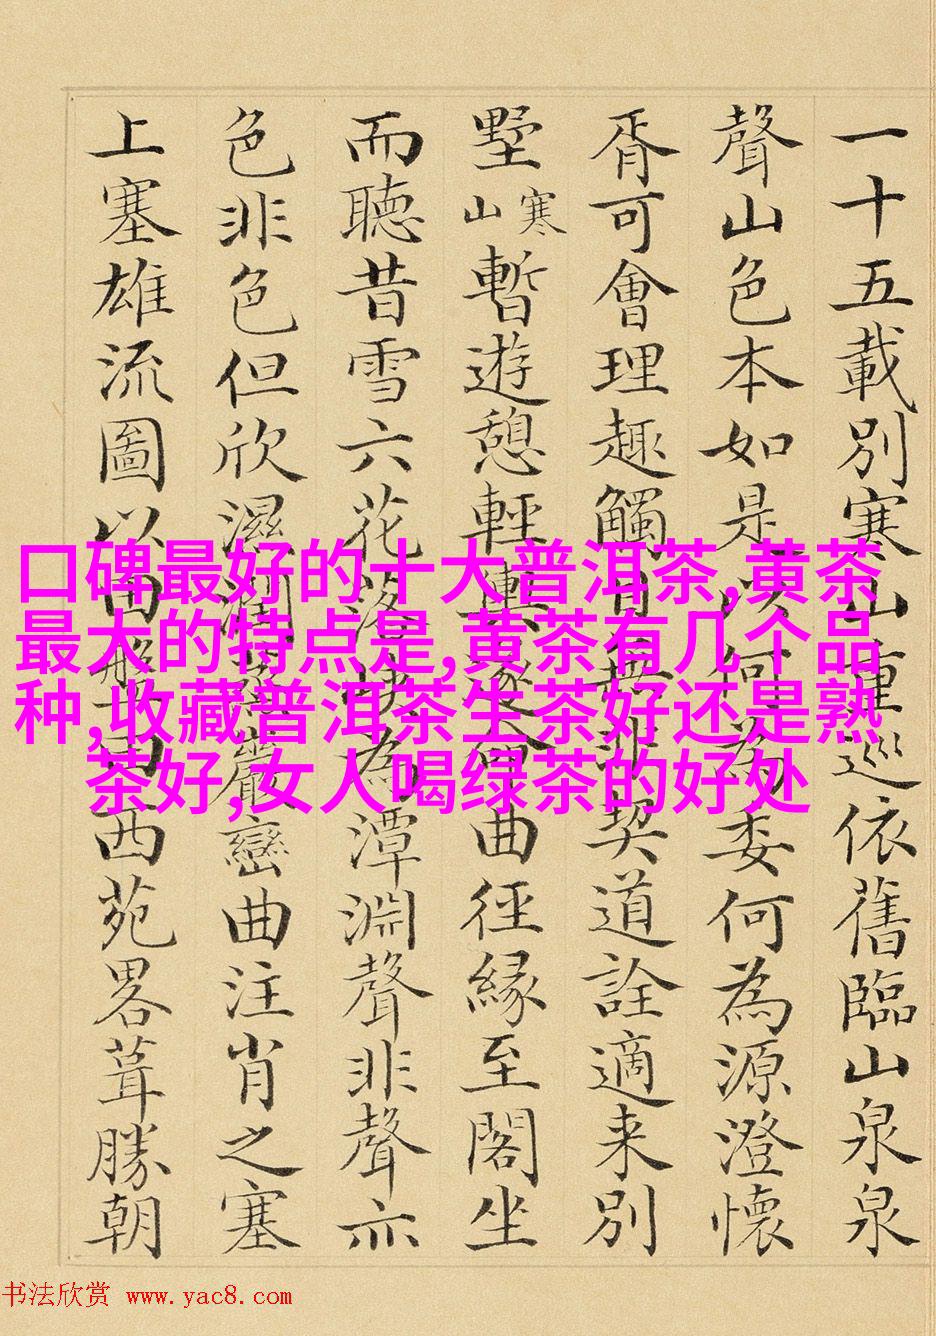 一十五載別寒山重巡依舊臨山泉泉
聲山色本如是以何為委何為源澄懷
胥可會理趣觸目無非契道詮適来別
墅寒山暫遊憩輕輿逐命曲徑緣至閣坐
而聽昔雪六花落為潭淵聲非聲亦
色非色但欣濕潤巖巒曲注肖之塞
上塞雄流圖以西苑畧葺勝朝
口碑最好的十大普洱茶,黄茶
最大的特点是,黄茶有几个品
种,收藏普洱茶生茶好还是熟
茶好,女人喝绿茶的好处
书法欣赏 www.yac8.com